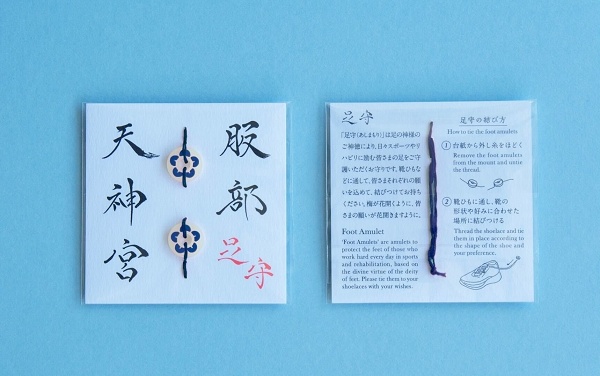 服部
天神宮
足守
足守
「足守(あしまもり)」は足の神様の
ご神徳により、日々スポーツやリ
ハビリに励む皆さまの足をご守
護いただくお守りです。靴ひもな
どに通して、皆さまそれぞれの願
いを込めて、結びつけてお持ち
ください。梅が花開くように、皆
さまの願いが花開きますように。
Foot Amulet
'Foot Amulets' are amulets to
protect the feet of those who
work hard every day in sports
and rehabilitation, based on
the divine virtue of the deity
of feet. Please tie them to your
shoelaces with your wishes.
足守の結び方
How to tie the foot amulets
① 台紙から外し糸をほどく
Remove the foot amulets
from the mount and untie
the thread.
② 靴ひもに通し、靴の
形状や好みに合わせた
場所に結びつける
Thread the shoelace and tie
them in place according to
the shape of the shoe and
your preference.